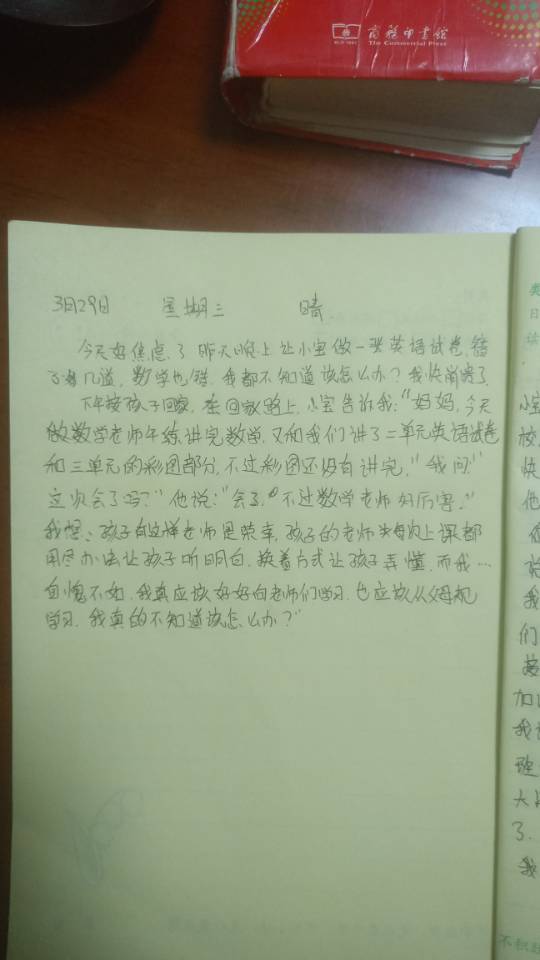 商务印书馆
The Commercial Press
3月29日 星期三 晴
今天好焦虑了昨天晚上让小宝做一张英语试卷,错
了好几道,数学也错.我都不知道该怎么办?我快崩溃了.
下午接孩子回家,在回家路上,小宝告诉我:"妈妈,今天
数学老师午练讲完数学,又和我们讲了二单元英语试卷
和三单元的彩图部分,不过彩图还没有讲完,"我问:
"这次会了吗?"他说:"会了,不过数学老师好厉害."
我想:孩子有这样老师是荣幸,孩子的老师每次上课都
用尽办法让孩子听明白,换着方式让孩子弄懂,而我…
自愧不如,我真应该好好向老师们学习.也应该从父母规
学习.我真的不知道该怎么办?"